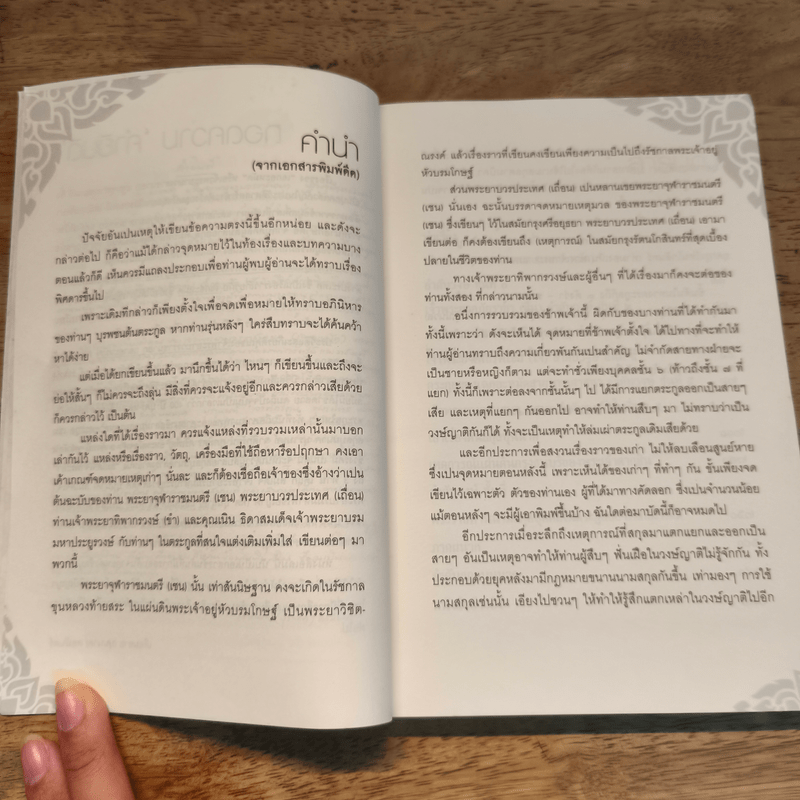 คำนำ
(จากเอกสารพิมพ์ดีด)
ปัจจัยอันเปนเหตุให้เขียนข้อความตรงนี้ขึ้นอีกหน่อย และดังจะ
กล่าวต่อไป ก็คือว่าแม้ได้กล่าวจุดหมายไว้ในท้องเรื่องและบทความบาง
ตอนแล้วก็ดี เห็นควรมีแถลงประกอบเพื่อท่านผู้พบผู้อ่านจะได้ทราบเรื่อง
พิศดารขึ้นไป
เพราะเดิมทีกล่าวก็เพียงตั้งใจเพื่อจดเพื่อหมายให้ทราบอภินิหาร
ของท่านๆ บุรพชนต้นตระกูล หากท่านรุ่นหลังๆ ใคร่สืบทราบจะได้ค้นคว้า
หาได้ง่าย
แต่เมื่อได้ยกเขียนขึ้นแล้ว มานึกขึ้นได้ว่า ไหนๆ ก็เขียนขึ้นและถึงจะ
ย่อให้สั้นๆ ก็ไม่ควรจะถึงลุ่น มีสิ่งที่ควรจะแจ้งอยู่อีกและควรกล่าวเสียด้วย
ก็ควรกล่าวไว้ เป็นต้น
แหล่งใดที่ได้เรื่องราวมา ควรแจ้งแหล่งที่รวบรวมเหล่านั้นมาบอก
เล่ากันไว้ แหล่งหรือเรื่องราว, วัตถุ, เครื่องมือที่ใช้ถือหารือปฤกษา คงเอา
เค้าเกณฑ์จดหมายเหตุเก่าๆ นั่นละ และก็ต้องเชื่อถือเจ้าของซึ่งอ้างว่าเปน
ต้นฉะบับของท่าน พระยาจุฬาราชมนตรี (เชน) พระยาบวรประเทศ (เถื่อน)
ท่านเจ้าพระยาทิพากรวงษ์ (ขำ) และคุณเนิน ธิดาสมเด็จเจ้าพระยาบรม
มหาประยูรวงษ์ กับท่านๆ ในตระกูลที่สนใจแต่งเติมเพิ่มใส่ เขียนต่อๆ มา
พวกนี้
พระยาจุฬาราชมนตรี (เชน) นั้น เท่าสันนิษฐาน คงจะเกิดในรัชกาล
ขุนหลวงท้ายสระ ในแผ่นดินพระเจ้าอยู่หัวบรมโกษฐ์ เป็นพระยาวิชิต-
ณรงค์ แล้วเรื่องราวที่เขียนคงเขียนเพียงความเป็นไปถึงรัชกาลพระเจ้าอยู่
หัวบรมโกษฐ์
ส่วนพระยาบวรประเทศ (เถื่อน) เปนหลานเขยพระยาจุฬาราชมนตรี
(เชน) นั่นเอง ฉะนั้นบรรดาจดหมายเหตุมวล ของพระยาจุฬาราชมนตรี
(เชน) ซึ่งเขียนๆ ไว้ในสมัยกรุงศรีอยุธยา พระยาบวรประเทศ (เถื่อน) เอามา
เขียนต่อ ก็คงต้องเขียนถึง (เหตุการณ์) ในสมัยกรุงรัตนโกสินทร์ที่สุดเบื้อง
ปลายในชีวิตของท่าน
ทางเจ้าพระยาทิพากรวงษ์และผู้อื่นๆ ที่ได้เรื่องมาก็คงจะต่อของ
ท่านทั้งสอง ที่กล่าวนามนั้น
อนึ่งการรวบรวมของข้าพเจ้านี้ ผิดกับของบางท่านที่ได้ทำกันมา
ทั้งนี้เพราะว่า ดังจะเห็นได้ จุดหมายที่ข้าพเจ้าตั้งใจ ได้ไปทางที่จะทำให้
ท่านผู้อ่านทราบถึงความเกี่ยวพันกันเปนสำคัญ ไม่จำกัดสายทางฝ่ายจะ
เป็นชายหรือหญิงก็ตาม แต่จะทำชั่วเพียงบุคคลชั้น ๖ (ท้าวถึงชั้น ๗ ที่
แยก) ทั้งนี้ก็เพราะต่อลงจากชั้นนั้นๆ ไป ได้มีการแยกตระกูลออกเป็นสายๆ
เสีย และเหตุที่แยกๆ กันออกไป อาจทำให้ท่านสืบๆ มา ไม่ทราบว่าเป็น
วงษ์ญาติกันก็ได้ ทั้งจะเป็นเหตุทำให้ล่มเผ่าตระกูลเดิมเสียด้วย
และอีกประการเพื่อสงวนเรื่องราวของเก่า ไม่ให้ลบเลือนสูญหาย
ซึ่งเปนจุดหมายตอนหลังนี้ เพราะเห็นได้ของเก่าๆ ที่ทำๆ กัน ชั้นเพียงจด
เขียนไว้เฉพาะตัว ตัวของท่านเอง ผู้ที่ได้มาทางคัดลอก ซึ่งเปนจำนวนน้อย
แม้ตอนหลังๆ จะมีผู้เอาพิมพ์ขึ้นบ้าง ฉันใดต่อมาบัดนี้ก็อาจหมดไป
อีกประการเมื่อระลึกถึงเหตุการณ์ที่สกุลมาแตกแยกและออกเป็น
สายๆ อันเป็นเหตุอาจทำให้ท่านผู้สืบๆ ฟั่นเฝือในวงษ์ญาติไม่รู้จักกัน ทั้ง
ประกอบด้วยยุคหลังมามีกฎหมายขนานนามสกุลกันขึ้น เท่ามองๆ การใช้
นามสกุลเช่นนั้น เอียงไปชวนๆ ให้ทำให้รู้สึกแตกเหล่าในวงษ์ญาติไปอีก